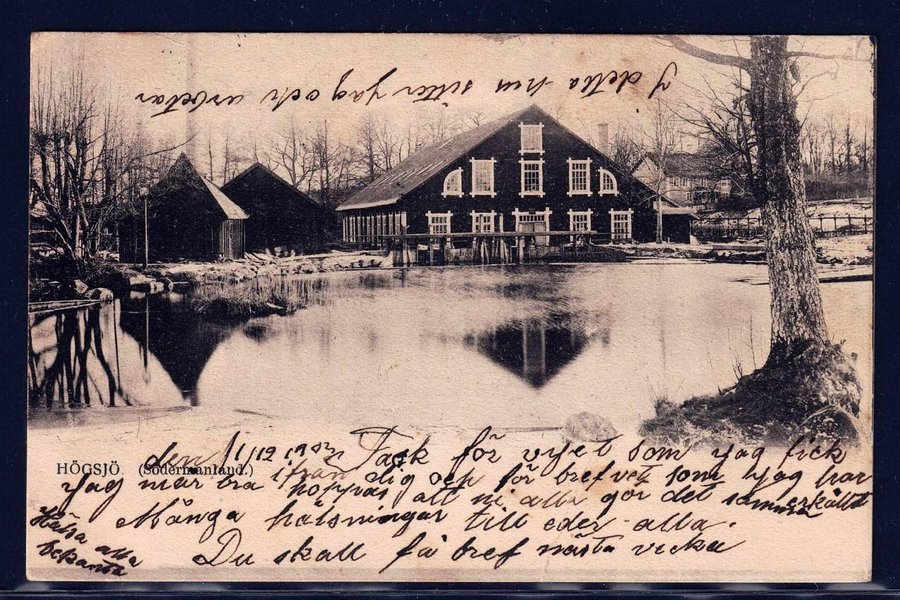 I detta hus sitter jag och arbetar
HÖGSJÖ. (Södermanland.)
den 1/12 1902 Tack för vyet som jag fick
ifrån dig och för brefvet som jag har erhållit
jag mår bra hoppas att ni alla gör det samma
Många hälsningar till eder alla.
Du skall få bref nästa vicka
Hälsa alla
bekanta